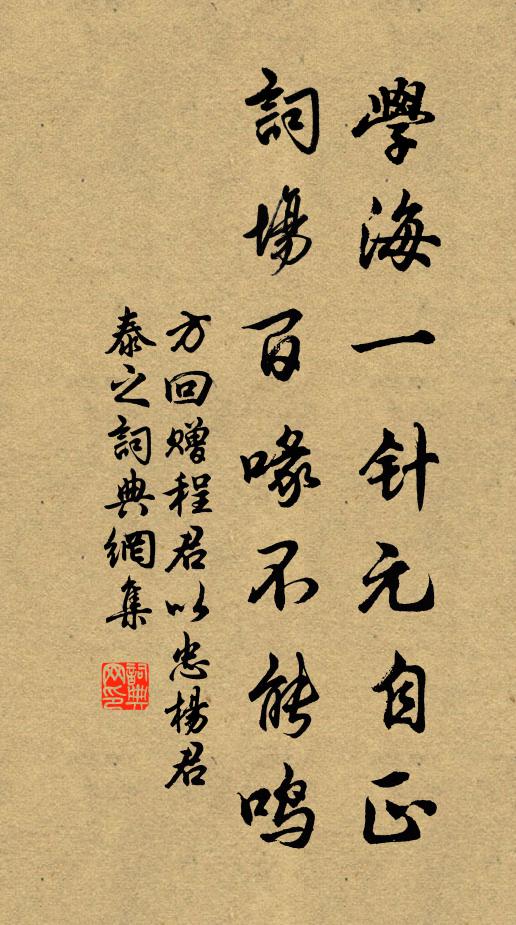 學海一针元自正
詞場百喙不能鳴
方回赠程君以忠楊君
泰之詞典網集
詞典網印